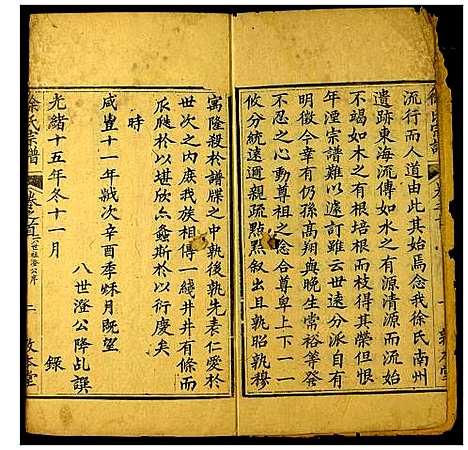 徐氏宗譜
流行而人道由此其始焉念我徐氏南州
遺跡東海流傳如水之有源清源而流始
不竭如木之有根培根而枝得其榮但恨
年湮宗譜難以遽訂雖云世遠分派自有
明徵今幸有仍孫高翔與晚生常裕等發
不忍之心動尊祖之念合尊卑上下一一
攸分統遠邇親疏點點叙出且孰昭孰穆
寓隆殺於譜牒之中孰後孰先素仁愛於
世次之内庶我族相傳一線井井有條而
瓜瓞於以堪欣亦螽斯於以衍慶矣
時
咸豐十一年歲次辛酉季秌月既望
八世澄公降乩譔
光緒十五年冬十一月
錄
徐氏宗譜
卷之首
八世祖澄公序
一
敦本堂